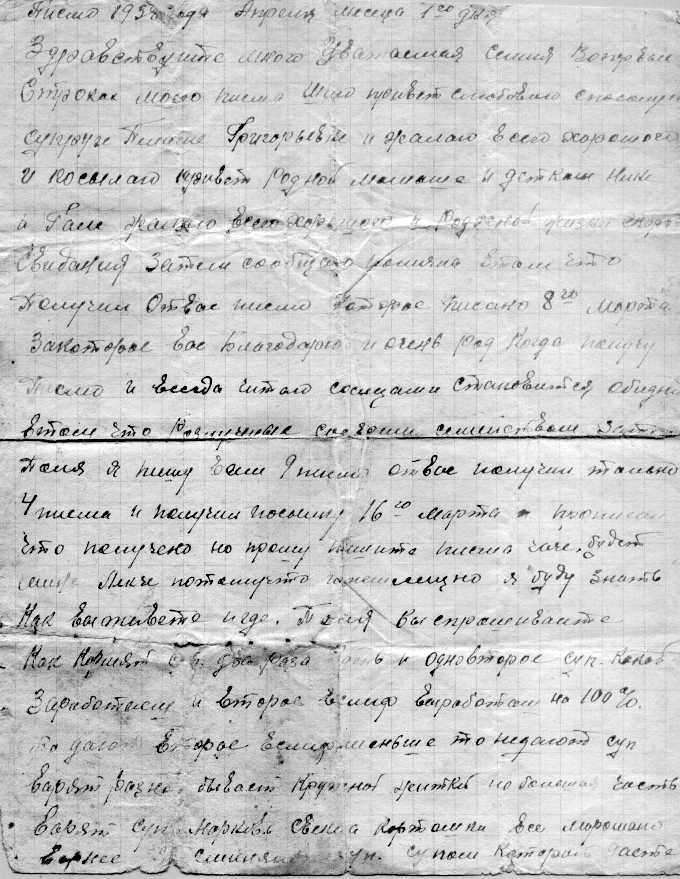 Писмо 1938 года Апреля месеца 1го дня
Здравствуйте много Уважаемая семия Вопервые
Строках моего писма Шлю привет слюбовию
супруги Григорьевне и жалаю всего хорошого
и посылаю привет Родной мамаше и деткам Нине
и Гале жалаю всего хорошого в жизни скорого
Свиданея Затем сообщаю втом что
Получил Отвас писмо Которое писано 8го Марта
Закоторое вас Благодарю и очень рад Когда получу
Писмо и всегда читаю сослцами становится обидно
втом что Розлученые своеми семейством Затем
Поля я пишу вам 9 писмо отвас получил только
4 писма и получил посылку 16го Марта прописал
что получено но прошу пишите писма чаще, будет
мине Лекче потомучто я буду знать
Как Выживете игде. Поля выспрашиваите
Как Кормят два раза вдень и одновторое суп. Какой
Заработаем и второе Еслиф Выработал на 100%.
то дают второе Еслифменьше то недают суп
Варят разной бывает Крупеной житкой нобольшая часть
Варят суп Морковь Свекла картошка все морожано
вернее суп. супом Которой